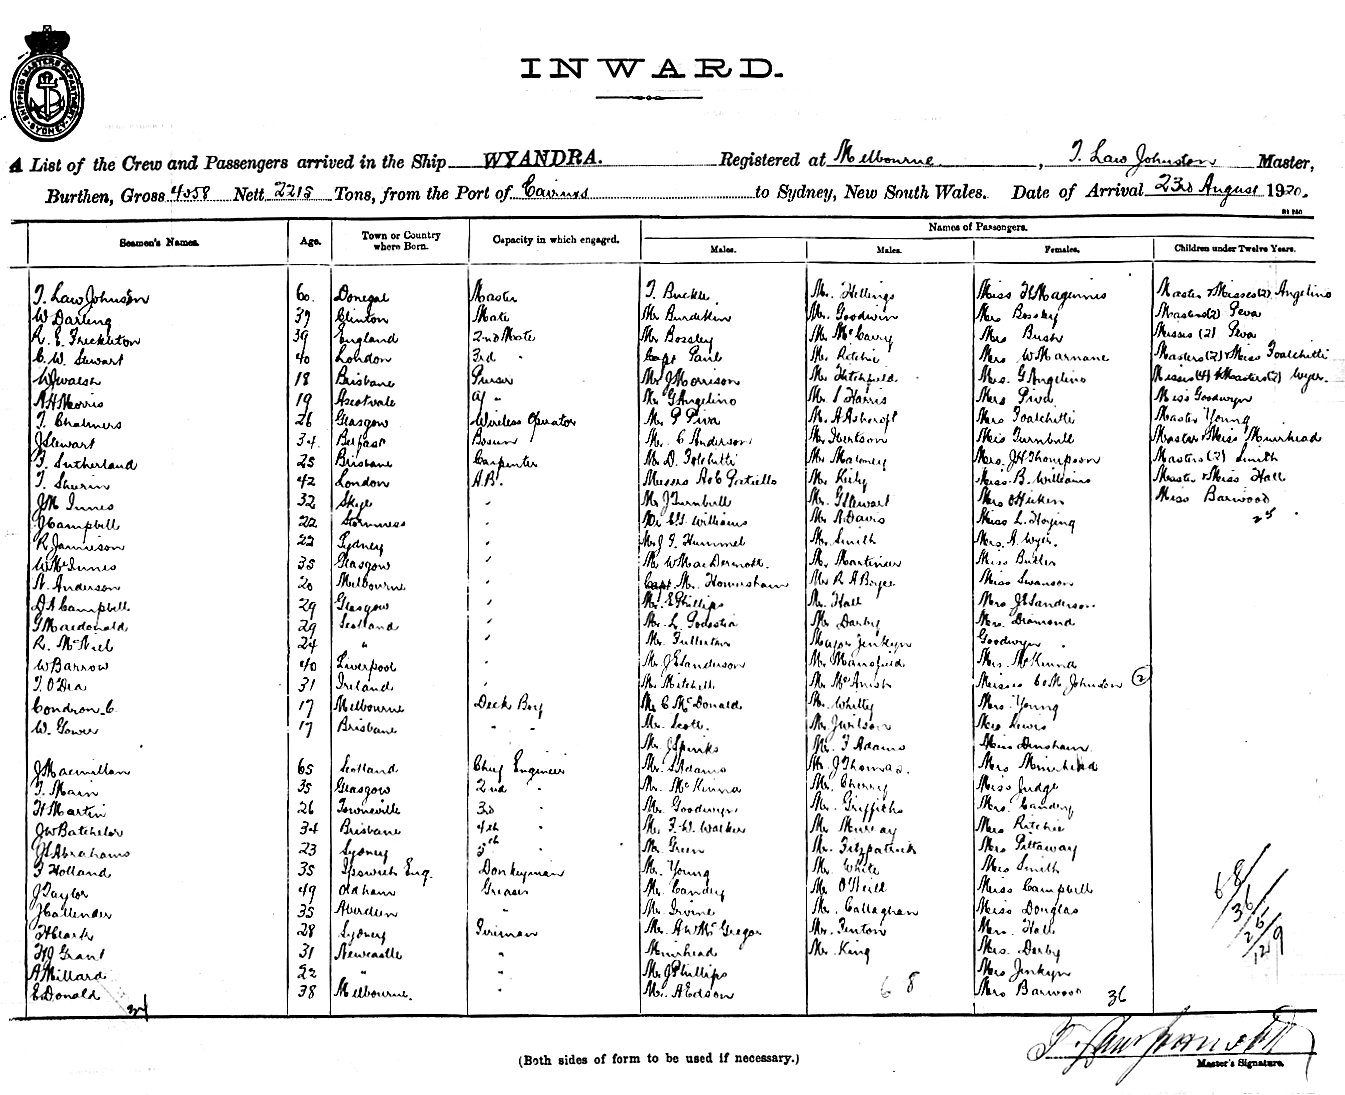 SHIPPING MASTERS DEPARTMENT SYDNEY
INWARD.
A List of the Crew and Passengers arrived in the Ship WYANDRA. Registered at Melbourne, T. Law Johnston Master,
Burthen, Gross 4058 Nett 2215 Tons, from the Port of Cairns to Sydney, New South Wales. Date of Arrival 23rd August 1920.
Seamen's Names. Age. Town or Country where Born. Capacity in which engaged. Names of Passengers.
Males. Males. Females. Children under Twelve Years.
T. Law Johnston 60. Donegal Master T. Buckle. Mr. Hellings Miss H Maguinis Master & Misses (2) Angelino
W Darling 37 Clinton Mate Mr. Burdekin Mr. Goodwin Mrs Bossley Masters (2) Peva
R. E. Freckleton 39 England 2nd Mate Mr Bossley Mr. McCarry Mrs Bush Misses (2) Peva
C. W. Stewart 40 London 3rd " Capt Paul Mr Ritchie Mrs W Marnane Masters (2) & Miss Foalchitti
W J Walsh 18 Brisbane Purser Mr J Morrison Mr Hitchfield Mrs. G Angelino Misses (4) & Masters (2) Wyer.
A H Morris 19 Ascotvale a/ " Mr G Angelino Mr. S Harris Mrs Piva Miss Goodwyn
T. Chalmers 26 Glasgow Wireless Operator Mr. P Piva Mr. A Ashcroft Mrs Foalchitti Master Young
J Stewart 34 Belfast Bosun Mr. C Anderson Mr. Hentson Miss Turnbull Master & Miss Muirhead
T. Sutherland 25 Brisbane Carpenter Mr D. Foalchitti Mr Maloney Mrs. J H Thompson Masters (2) Smith
T. Shurin 42 London A.B. Messrs A & C Postiello Mr. Kirby Miss B. Williams Master & Miss Hall
J M Innes 32 Skye " Mr J Turnbull Mr. G Stewart Mrs Miss Barwood
J Campbell 22 Stornness " Mr C G Williams Mr A Davis Miss L. Hoying 25
R Jamieson 22 Sydney " Mr J F Hummel Mr. Smith Mrs. A Wyer.
W McInnes 35 Glasgow " Mr W MacDermott. Mr. Martineer Miss Butler
N. Anderson 20 Melbourne " Capt. M. Homersham Mr R A Boyce Miss Swanson
D A Campbell 29 Glasgow " Mr. E Phillips Mr. Hall Mrs J E Sanderson
G Macdonald 29 Scotland " Mr. L. Podestia Mr Darby Mrs. Diamond
R. McNeil 24 " " Mr. Fullerton Major Jenkyn Goodwyn
W Barrow 40 Liverpool " Mr. J E Sanderson Mr. Mansfield Mrs. McKinna
T. O'Dea 31 Ireland " Mr. Mitchell Mr. McAnish Misses C & M Johnson (2)
Condron. C. 17 Melbourne Deck Boy Mr. C McDonald Mr. Whitty Mrs. Young
W. Gower 17 Brisbane " " Mr. Scott. Mr. J Wilson Mrs Lewis
Mr. J Spinks Mr. F Adams Miss Densham
J Macmillan 65 Scotland Chief Engineer Mr. S Adams Mr. J Thomas. Mrs Muirhead
T. Main 35 Glasgow 2nd " Mr. McKinna Mr. Cherry Miss Judge
H Martin 26 Townsville 3rd " Mr. Goodwyn Mr. Griffiths Mrs. Candey
J W Batchelor 34 Brisbane 4th " Mr. F. W. Walker Mr. Murray Mrs Ritchie
J L Abrahams 23 Sydney 5th " Mr. Green Mr. Fitzpatrick Mrs Pittaway
F Holland 35 Ipswich Eng. Donkeyman Mr. Young Mr. White Mrs Smith
J Taylor 49 Oldham Greaser Mr. Candey Mr O'Neill Miss Campbell
J Callender 35 Aberdeen " Mr. Irvine Mr. Callaghan Miss Douglas 68/
H Clark 28 Sydney Fireman Mr. A W McGregor Mr. Fenton Mrs. Hall 36/
H J Grant 31 Newcastle " Muirhead Mr. King Mrs. Darby
A Millard 22 " " Mr J Phillips Mrs Jenkyn 129
E Donald 38 Melbourne. " Mr. A Edson 68 Mrs Barwood 36
34
T. Law Johnston
Master's Signature.
(Both sides of form to be used if necessary.)